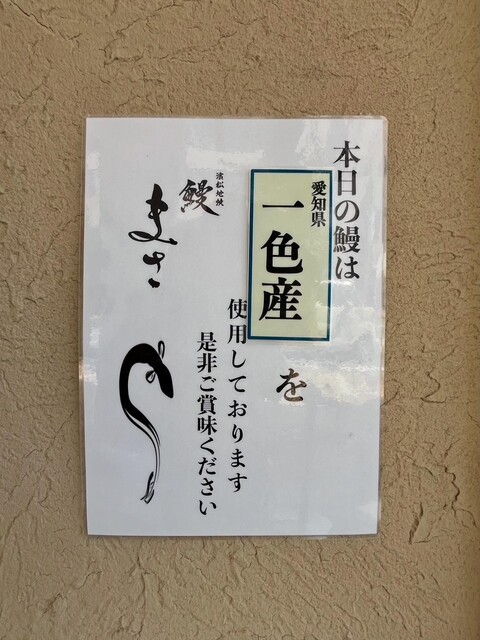 本日の鰻は
愛知県
一色産
を
使用しております
是非ご賞味ください
鰻
まさ